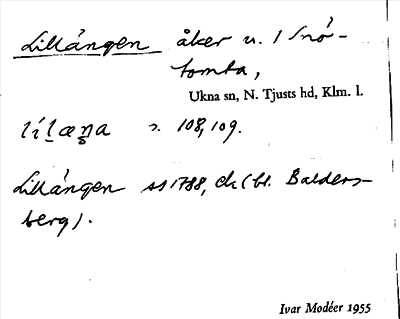 Lillängen åker u. 1 Snö-
tomta,
Ukna sn, N. Tjusts hd, Klm. l.
lílæŋa 2. 108, 109.
Lillängen ss 1788, ck (bl. Balders-
berg).
Ivar Modéer 1955